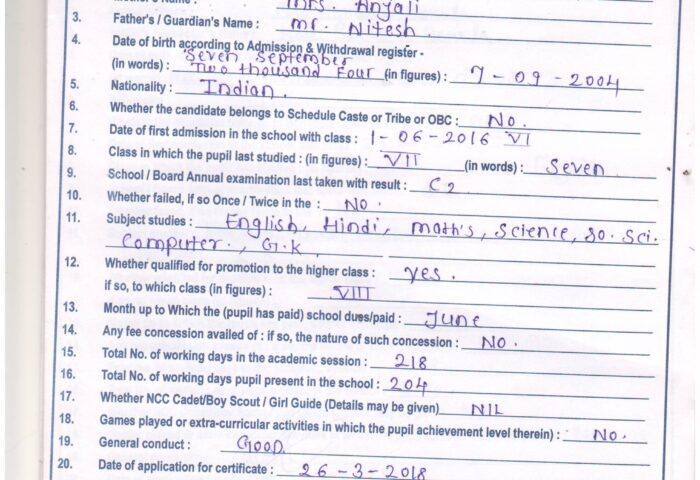 Mother's Name : Mrs. Anjali
3. Father's / Guardian's Name : Mr. Nitesh.
4. Date of birth according to Admission & Withdrawal register -
Seven September
(in words) : Two thousand Four (in figures) : 7 - 09 - 2004
5. Nationality : Indian.
6. Whether the candidate belongs to Schedule Caste or Tribe or OBC : No.
7. Date of first admission in the school with class : 1 - 06 - 2016 VI
8. Class in which the pupil last studied : (in figures) : VII (in words) : Seven
9. School / Board Annual examination last taken with result : C2
10. Whether failed, if so Once / Twice in the : NO.
11. Subject studies : English, Hindi, Math's, Science, So. Sci.
Computer., G.K
12. Whether qualified for promotion to the higher class : yes.
if so, to which class (in figures) : VIII
13. Month up to Which the (pupil has paid) school dues/paid : June
14. Any fee concession availed of : if so, the nature of such concession : NO.
15. Total No. of working days in the academic session : 218
16. Total No. of working days pupil present in the school : 204
17. Whether NCC Cadet/Boy Scout / Girl Guide (Details may be given) NIL
18. Games played or extra-curricular activities in which the pupil achievement level therein) : No.
19. General conduct : GOOD.
20. Date of application for certificate : 26 - 3 - 2018